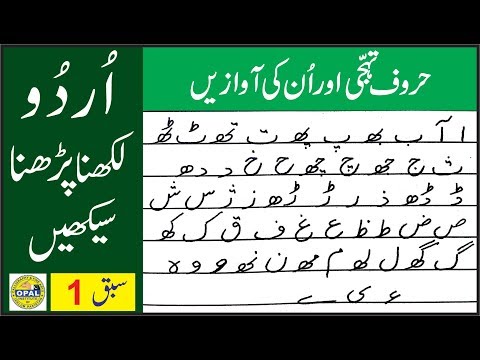 اُردُو
لکھنا پڑھنا
سیکھیں
سبق 1
OPAL
حروف تہجّی اور اُن کی آوازیں
ا آ ب بھ پ پھ ت تھ ٹ ٹھ
ث ج جھ چ چھ ح خ د دھ
ڈ ڈھ ذ ر ڑ ڑھ ز ژ س ش
ص ض ط ظ ع غ ف ق ک کھ
گ گھ ل لھ م مھ ن نھ و وہ
ء ی ے